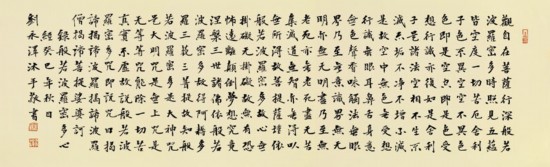 觀自在菩薩行深般若
波羅密多時照見五蘊
皆空度一切苦厄舍利
子色不異空空不異色
色即是空空即是色受
想行識亦復如是舍利
子是諸法空相不生不
滅不垢不淨不增不減
是故空中無色無受想
行識無眼耳鼻舌身意
無色聲香味觸法無眼
界乃至無意識界無無
明亦無無明盡乃至無
老死亦無老死盡無苦
集滅道無智亦無得以
無所得故菩提薩埵依
般若波羅密多故心無
掛礙無掛礙故無有恐
怖遠離顛倒夢想究竟
涅槃三世諸佛依般若
波羅密多故得阿耨多
羅三藐三菩提故知般
若波羅密多是大神咒
是大明咒是無上咒是
無等等咒能除一切苦
真實不虛故說般若波
羅密多咒即說咒曰揭
諦揭諦波羅揭諦波羅
僧揭諦菩提薩婆訶
錄般若波羅密多心
經癸巳年秋日
劉永澤沐手敬書